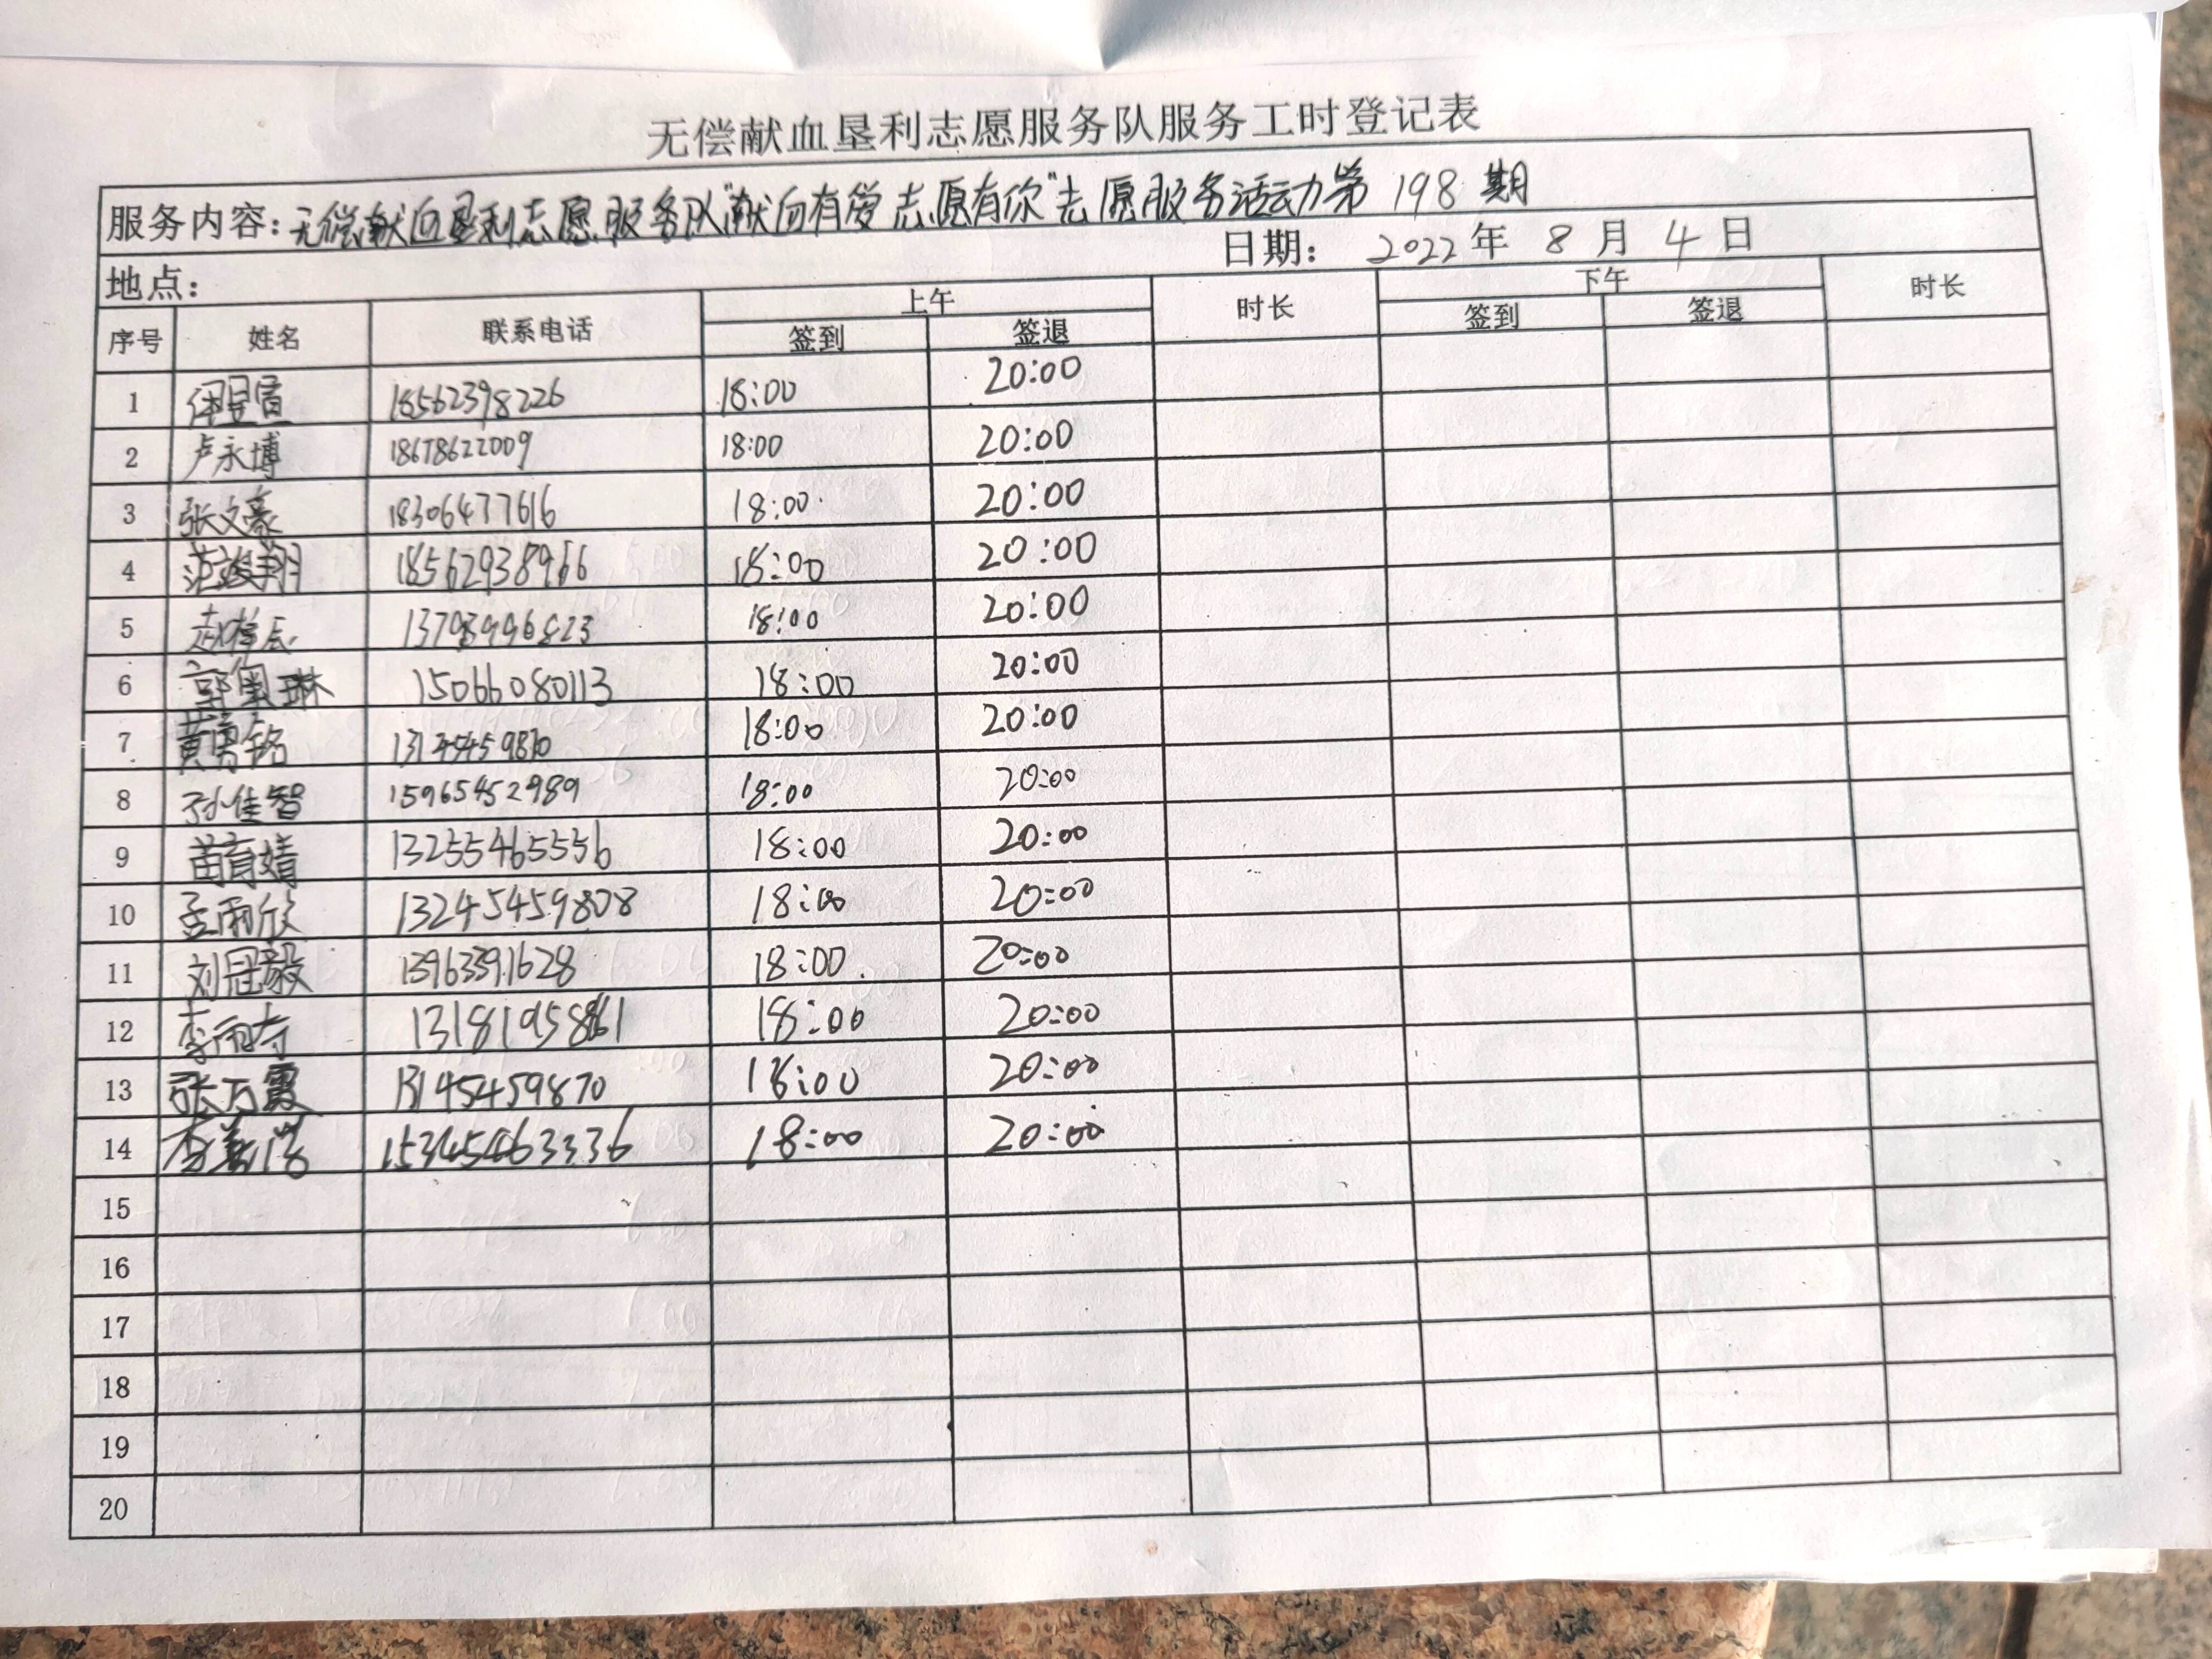 无偿献血垦利志愿服务队服务工时登记表
服务内容：无偿献血垦利志愿服务队"献血有爱 志愿有你"志愿服务活动第 198 期
地点： 日期： 2022 年 8 月 4 日
序号 姓名 联系电话 上午 签到 签退 时长 下午 签到 签退 时长
1 18562398226 18:00 20:00
2 卢永博 18678622009 18:00 20:00
3 张文豪 18306477616 18:00 20:00
4 范竣翔 18562938966 18:00 20:00
5 赵梓辰 13793996823 18:00 20:00
6 郭 琳 15066080113 18:00 20:00
7 黄 铭 18:00 20:00
8 孙佳智 15965452989 18:00 20:00
9 苗育婧 13255465556 18:00 20:00
10 孟雨欣 13245459808 18:00 20:00
11 刘冠毅 13963391628 18:00 20:00
12 李雨 18:00 20:00
13 张万霞 13145459870 18:00 20:00
14 李 15345463336 18:00 20:00
15
16
17
18
19
20